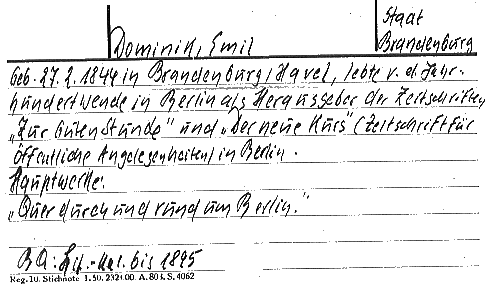 Staat
Dominik, Emil Brandenburg
Geb. 27.2.1844 in Brandenburg/Havel, lebte v. d. Jahr-
hundertwende in Berlin als Herausgeber der Zeitschriften
„Zur guten Stunde" und „Der neue Kurs" (Zeitschrift für
öffentliche Angelegenheiten) in Berlin.
Hauptwerke:
„Quer durch und rund um Berlin."
BA: Lit.-Kal. bis 1895
Reg. 10. Stichnote 1.50. 2321 00. A. 80 k S. 4062